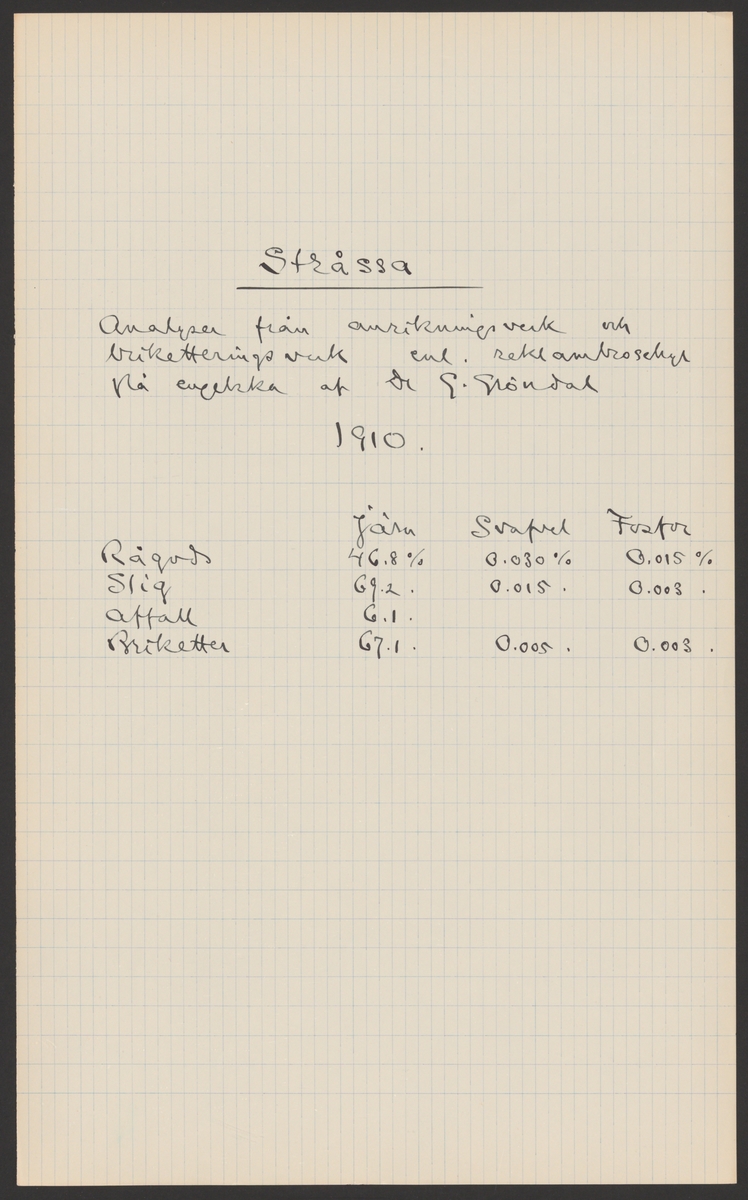 Stråssa
Analyser från anrikningsverk och
briketteringsverk enl. reklambroschyr
på engelska af Dr G. Gröndal
1910.
Järn Svafvel Fosfor
Rågods 46.8% 0.030% 0.015%
Slig 69.2 . 0.015 . 0.003 .
Affall 6.1 .
Briketter 67.1 . 0.005 . 0.003 .